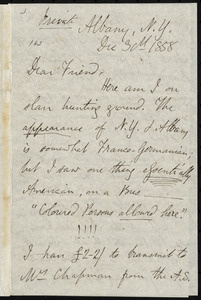 Private
Albany, N.Y.
Dec 30th/1858
Dear Friend,
Here am I on
slave hunting ground. The
appearance of N.Y. & Albany
is somewhat Franco-Germanian,
but I saw one thing essentially
American, on a 'Bus
"Coloured Persons allowed here."
!!!!
I have £2-2/ to transmit to
Mrs Chapman from the A.S.